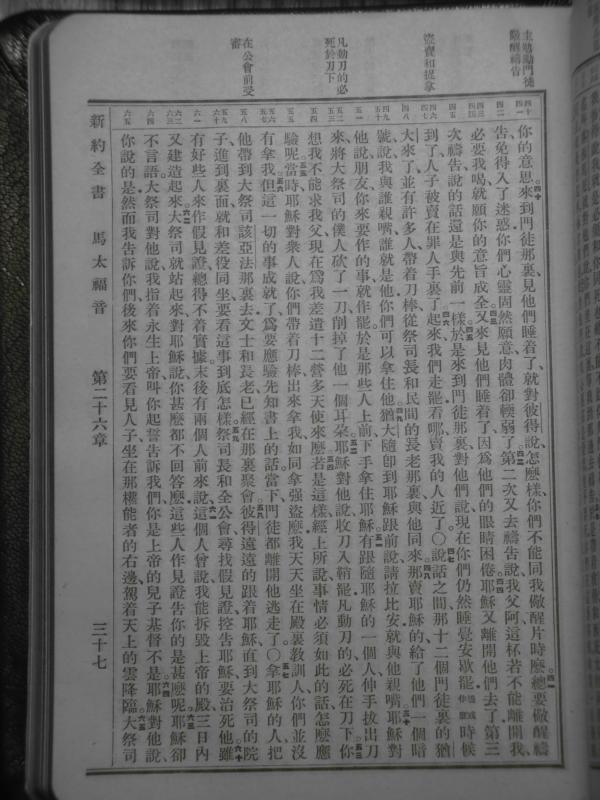 主勉勵門徒
儆醒禱告
賣和捉拿
凡動刀的必
死於刀下
在公會前受
審
你的意思來到門徒那裏見他們睡着了就對彼得說怎麽樣你們不能同我儆醒片時麽總要儆醒禱
告免得入了迷惑你們心靈固然願意肉體卻輭弱了第二次又去禱告說我父阿這杯若不能離開我
必要我喝就願你的意旨成全又來見他們睡着了因爲他們的眼睛困倦耶穌又離開他們去了第三
次禱告說的話還是與先前一樣於是來到門徒那裏對他們說現在你們仍然睡覺安歇罷時候
到了人子被賣在罪人手裏了起來我們走罷看哪賣我的人近了〇說話之間那十二個門徒裏的猶
大來了並有許多人帶着刀棒從祭司長和民間的長老那裏與他同來那賣耶穌的給了他們一個暗
號說我與誰親嘴誰就是他你們可以拿住他猶大隨卽到耶穌跟前說請拉比安就與他親嘴耶穌對
他說朋友你來要作的事就作罷於是那些人上前下手拿住耶穌有跟隨耶穌的一個人伸手拔出刀
來將大祭司的僕人砍了一刀削掉了他一個耳朵耶穌對他說收刀入鞘罷凡動刀的必死在刀下你
想我不能求我父現在爲我差遣十二營多天使來麽若是這樣經上所說事情必須如此的話怎麽應
驗呢當時耶穌對衆人說你們帶着刀棒出來拿我如同拿强盜麽我天天坐在殿裏敎訓人你們並沒
有拿我但這一切的事成就了爲要應驗先知書上的話當下門徒都離開他逃走了〇拿耶穌的人把
他帶到大祭司該亞法那裏去文士和長老已經在那裏聚會彼得遠遠的跟着耶穌直到大祭司的院
子進到裏面就和差役同坐要看這事到底怎樣祭司長和全公會尋找假見證控告耶穌要治死他雖
有好些人來作假見證總得不着實據末後有兩個人前來說這個人曾說我能拆毀上帝的殿三日內
又建造起來大祭司就站起來對耶穌說你甚麽都不回答麽這些人作見證告你的是甚麽呢耶穌卻
不言語大祭司對他說我指着永生上帝叫你起誓告訴我們你是上帝的兒子基督不是耶穌對他說
你說的是然而我告訴你們後來你們要看見人子坐在那權能者的右邊駕着天上的雲降臨大祭司
新約全書 馬太福音 第二十六章 三十七